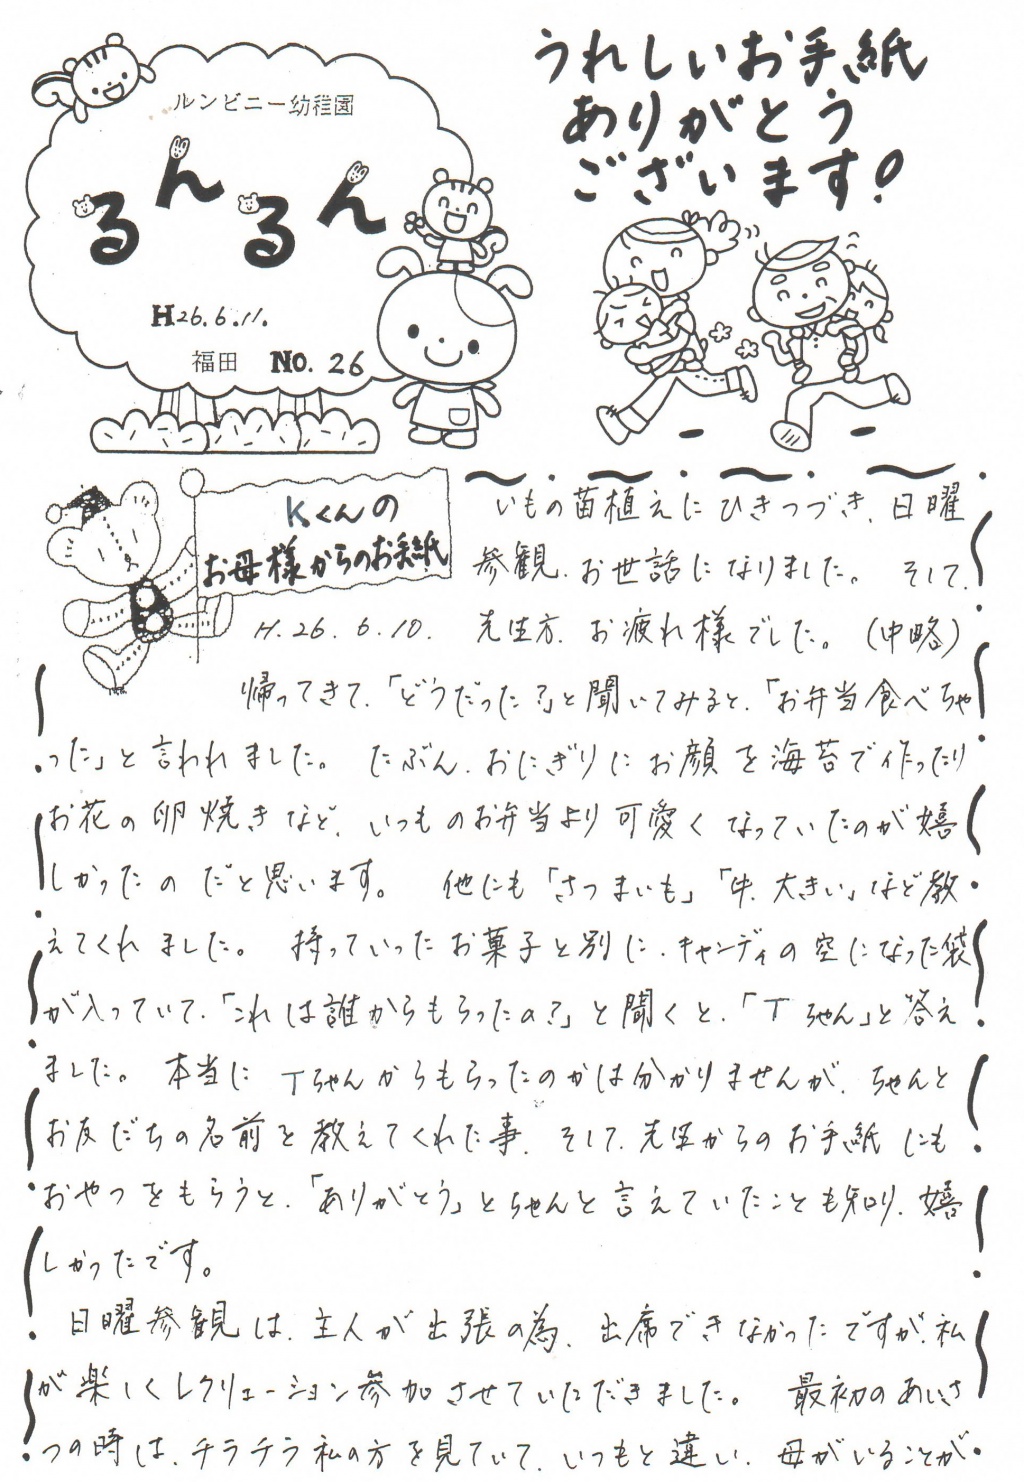 ルンビニー幼稚園
るんるん
H26.6.11.
福田 NO.26
うれしいお手紙
ありがとう
ございます!
Kくんの
お母様からのお手紙
H.26.6.10.
いもの苗植えにひきつづき、日曜
参観、お世話になりました。 そして、
先生方、お疲れ様でした。(中略)
帰ってきて、「どうだった?」と聞いてみると、「お弁当食べちゃ
った」と言われました。 たぶん、おにぎりにお顔を海苔で作ったり
お花の卵焼きなど、いつものお弁当より可愛くなっていたのが嬉
しかったのだと思います。 他にも「さつまいも」「牛、大きい」など教
えてくれました。 持っていったお菓子と別に、キャンディの空になった袋
が入っていて、「これは誰からもらったの?」と聞くと、「Tちゃん」と答え
ました。 本当にTちゃんからもらったのかは分かりませんが、ちゃんと
お友だちの名前を教えてくれた事、そして、先生からのお手紙にも
おやつをもらうと、「ありがとう」とちゃんと言えていたことも知り、嬉
しかったです。
日曜参観は、主人が出張の為、出席できなかったですが、私
が楽しくレクリェーション参加させていただきました。 最初のあいさ
つの時は、チラチラ私の方を見ていて、いつもと違い、母がいることが